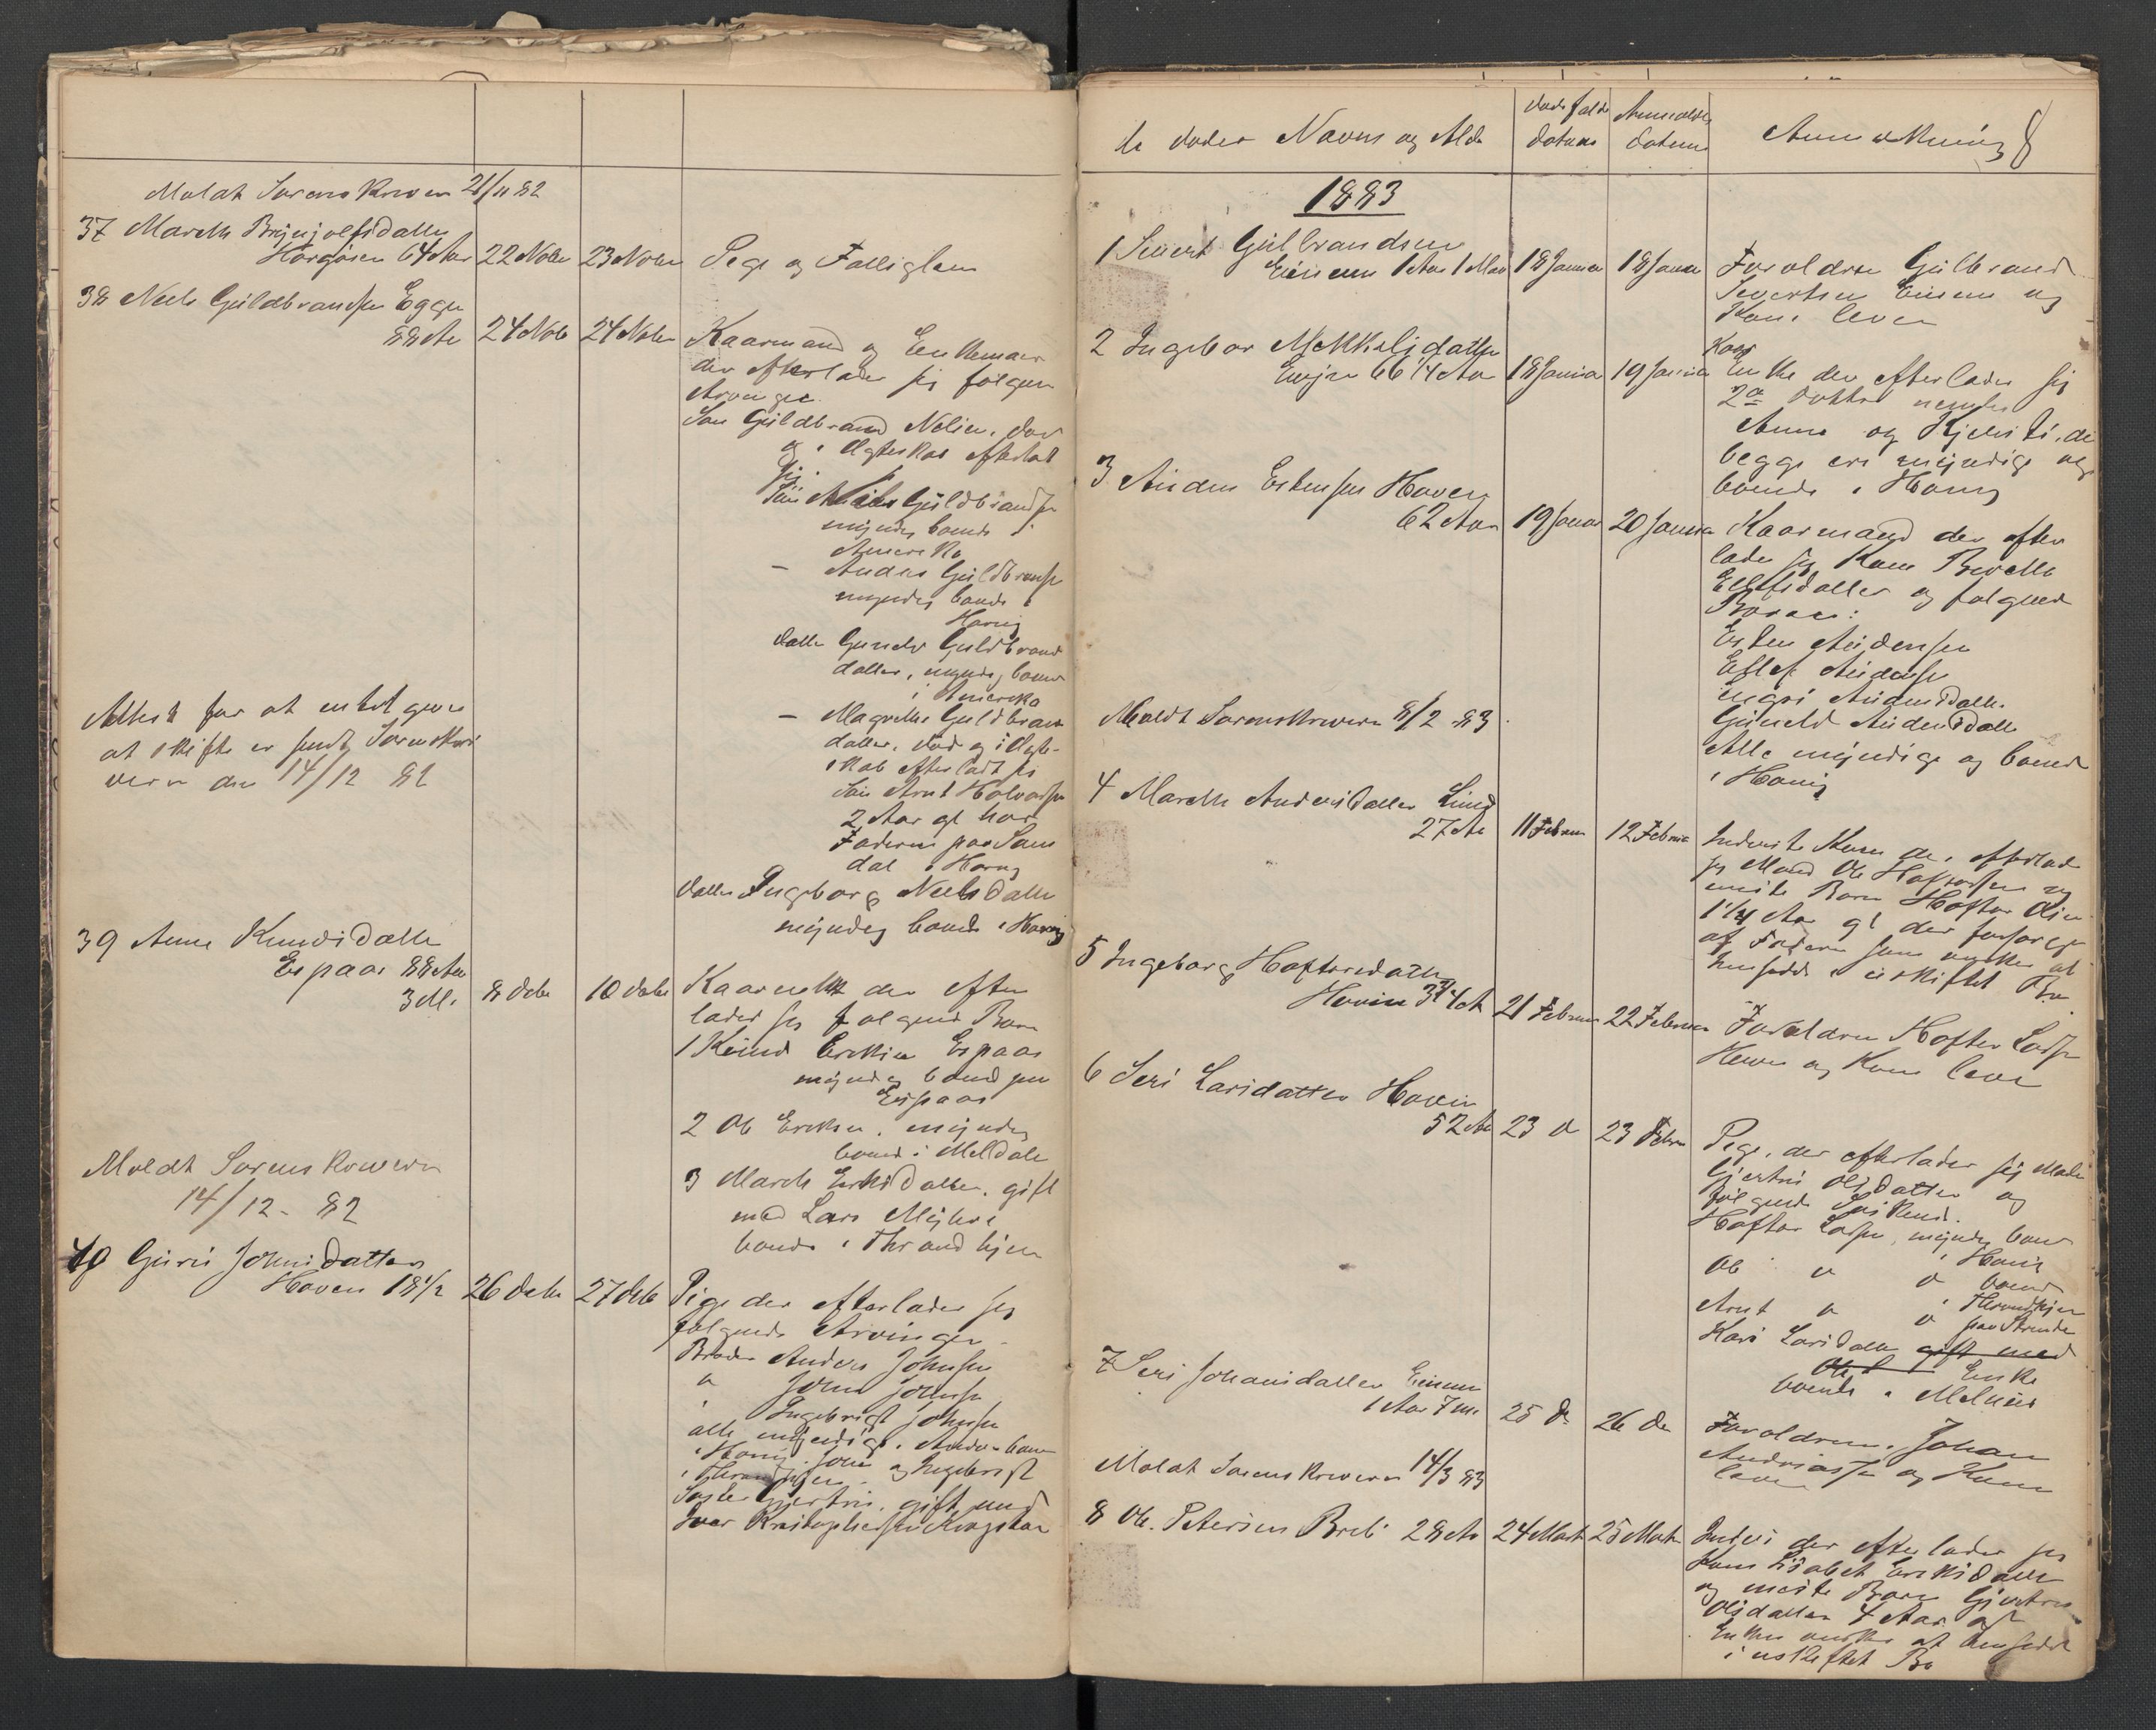 Meldt Sorenskriveren 21/11 82
37 Marethe Brynjolfsdatter
Horgøien 64 Aar 22 Nobe 23 Nober Pige og Fattiglem
38 Neels Guldbrandsen Eggen
88 Ar 24 Nobr 24 Nober Kaarmand og Enkemand
der efterlader sig følgende
Arvinger
Søn Guldbrand Nelsen. død
og i Ægteskab efterladt
sig
Søn Neels Guldbrands
myndig boende i
Amerika
— Anders Guldbrands
myndig boende i
Horrig
Datter Gunele Guldbrands
datter, myndig boende
i Amerika
— Magrethe Guldbrands
datter, død og i Ægte-
skab efterladt sig
Søn Arnt Halvorsen
2 Aar gl hos
Faderen paa Sam
dal i Horrig
Datter Ingeborg Neelsdatter
myndig boende i Horrig
Attest for at intet gives
at skifte er sendt Sorenskri
veren den 14/12 82
39 Anne Knudsdatter
Espaas 88 Aar
3 M. 8 Debr 10 Debr Kaarenke der efter
lader sig følgende Børn
1 Knud Eriksen Espaas
myndig boende paa
Espaas
2 Ole Eriksen. myndig
boende i Melldalen
3 Mareth Eriksdatter. gift
med Lars
boende i Throndhjem
Meldt Sorenskriveren
14/12 - 82
40 Guri Johnsdatter
Hoven 18 1/2 26 Debr 27 Debr Pige der efterlader sig
følgende Arvinger
Broder Anders Johnsen
" John Johnsen
" Ingebrigt Johnsen
alle myndige. Anders boende
i Horrig. John og Ingebrigt
i Throndhjem
Søster Gjertru. gift med
Iver Kristophersen
de dødes Navne og Alder Dødsfalds datum Anmeldelses datum Anmerkning 8
1883
1 Sivert Gulbrandsen
Einum 1 Aar 1 Maa 18 Januar 18 Januar Foroldrene Gulbrand
Sivertsen Einum og
Kone lever
2 Ingebor Mekkelsdatter
66 1/4 Aar 18 Januar 19 Januar Kaar
Enke der efterlader sig
2de Døttre nemlig
Anne og Kjersti. de
begge ere myndige og
boende i Horrig
3 Auden Estensen Hoven
62 Aar 19 Januar 20 Januar Kaarmand der efter
lader sig Kone Berethe
Ellefsdatter og følgende
Børn:
Esten Audensen
Ellef Audensen
Ingri Audensdatter
Gunild Audensdatter
Alle myndige og boende
i Horrig
Meldt Sorenskriveren 8/2 - 83
4 Marethe Andersdatter Lund
27 Ar 11 Februar 12 Februar Inderste Kone der efterlader
sig Mand Ole Haftorsen og
eneste Barn Haftor Olsen
1 1/4 Aar gl der forsørges
af Faderen som ønsker at
hensidde i uskiftet Bo
5 Ingeborg Haftorsdatter
Hovin 3 3/4 A 21 Februar 22 Februar Foroldrene Haftor Larsen
Hoven og Kone lever
6 Seri Larsdatter Hovin
52 Ar 23 d 23 Febru Pige, der efterlader sig Moder
Gjertru Olsdatter og
følgende Søskend.
Haftor Larsen, myndig boende
i Horrig
Ole " d boende
i Throndhjem
Arnt " d paa Strinden
Kari Larsdatter gift med
Ole Enke
boende i Melhus
7 Seri Johansdatter Einum
1 Aar 7 M. 25 d. 26 d. Foroldrene. Johan
Andriassen og Kone
lever
Meldt Sorenskriveren 14/3 83
8 Ole. Petersen Breli 28 Ar 24 Marts 25 Marts Inders der efterlader sig
Kone Lisabet Eriksdatter
og eneste Barn Gjertru
Olsdatter 4 Aar gl
Enken ønsker at hensidde
i uskiftet Bo